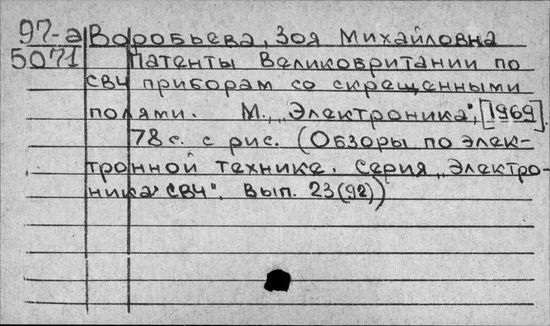 97-а Воробьева, Зоя Михайловна
5071 Патенты Великобритании по
СВЧ приборам со скрещенными
полями. М., „Электроника", [1969].
78 с. с рис. (Обзоры по элек-
тронной технике. Серия „Электро-
ника СВЧ". Вып. 23(92))